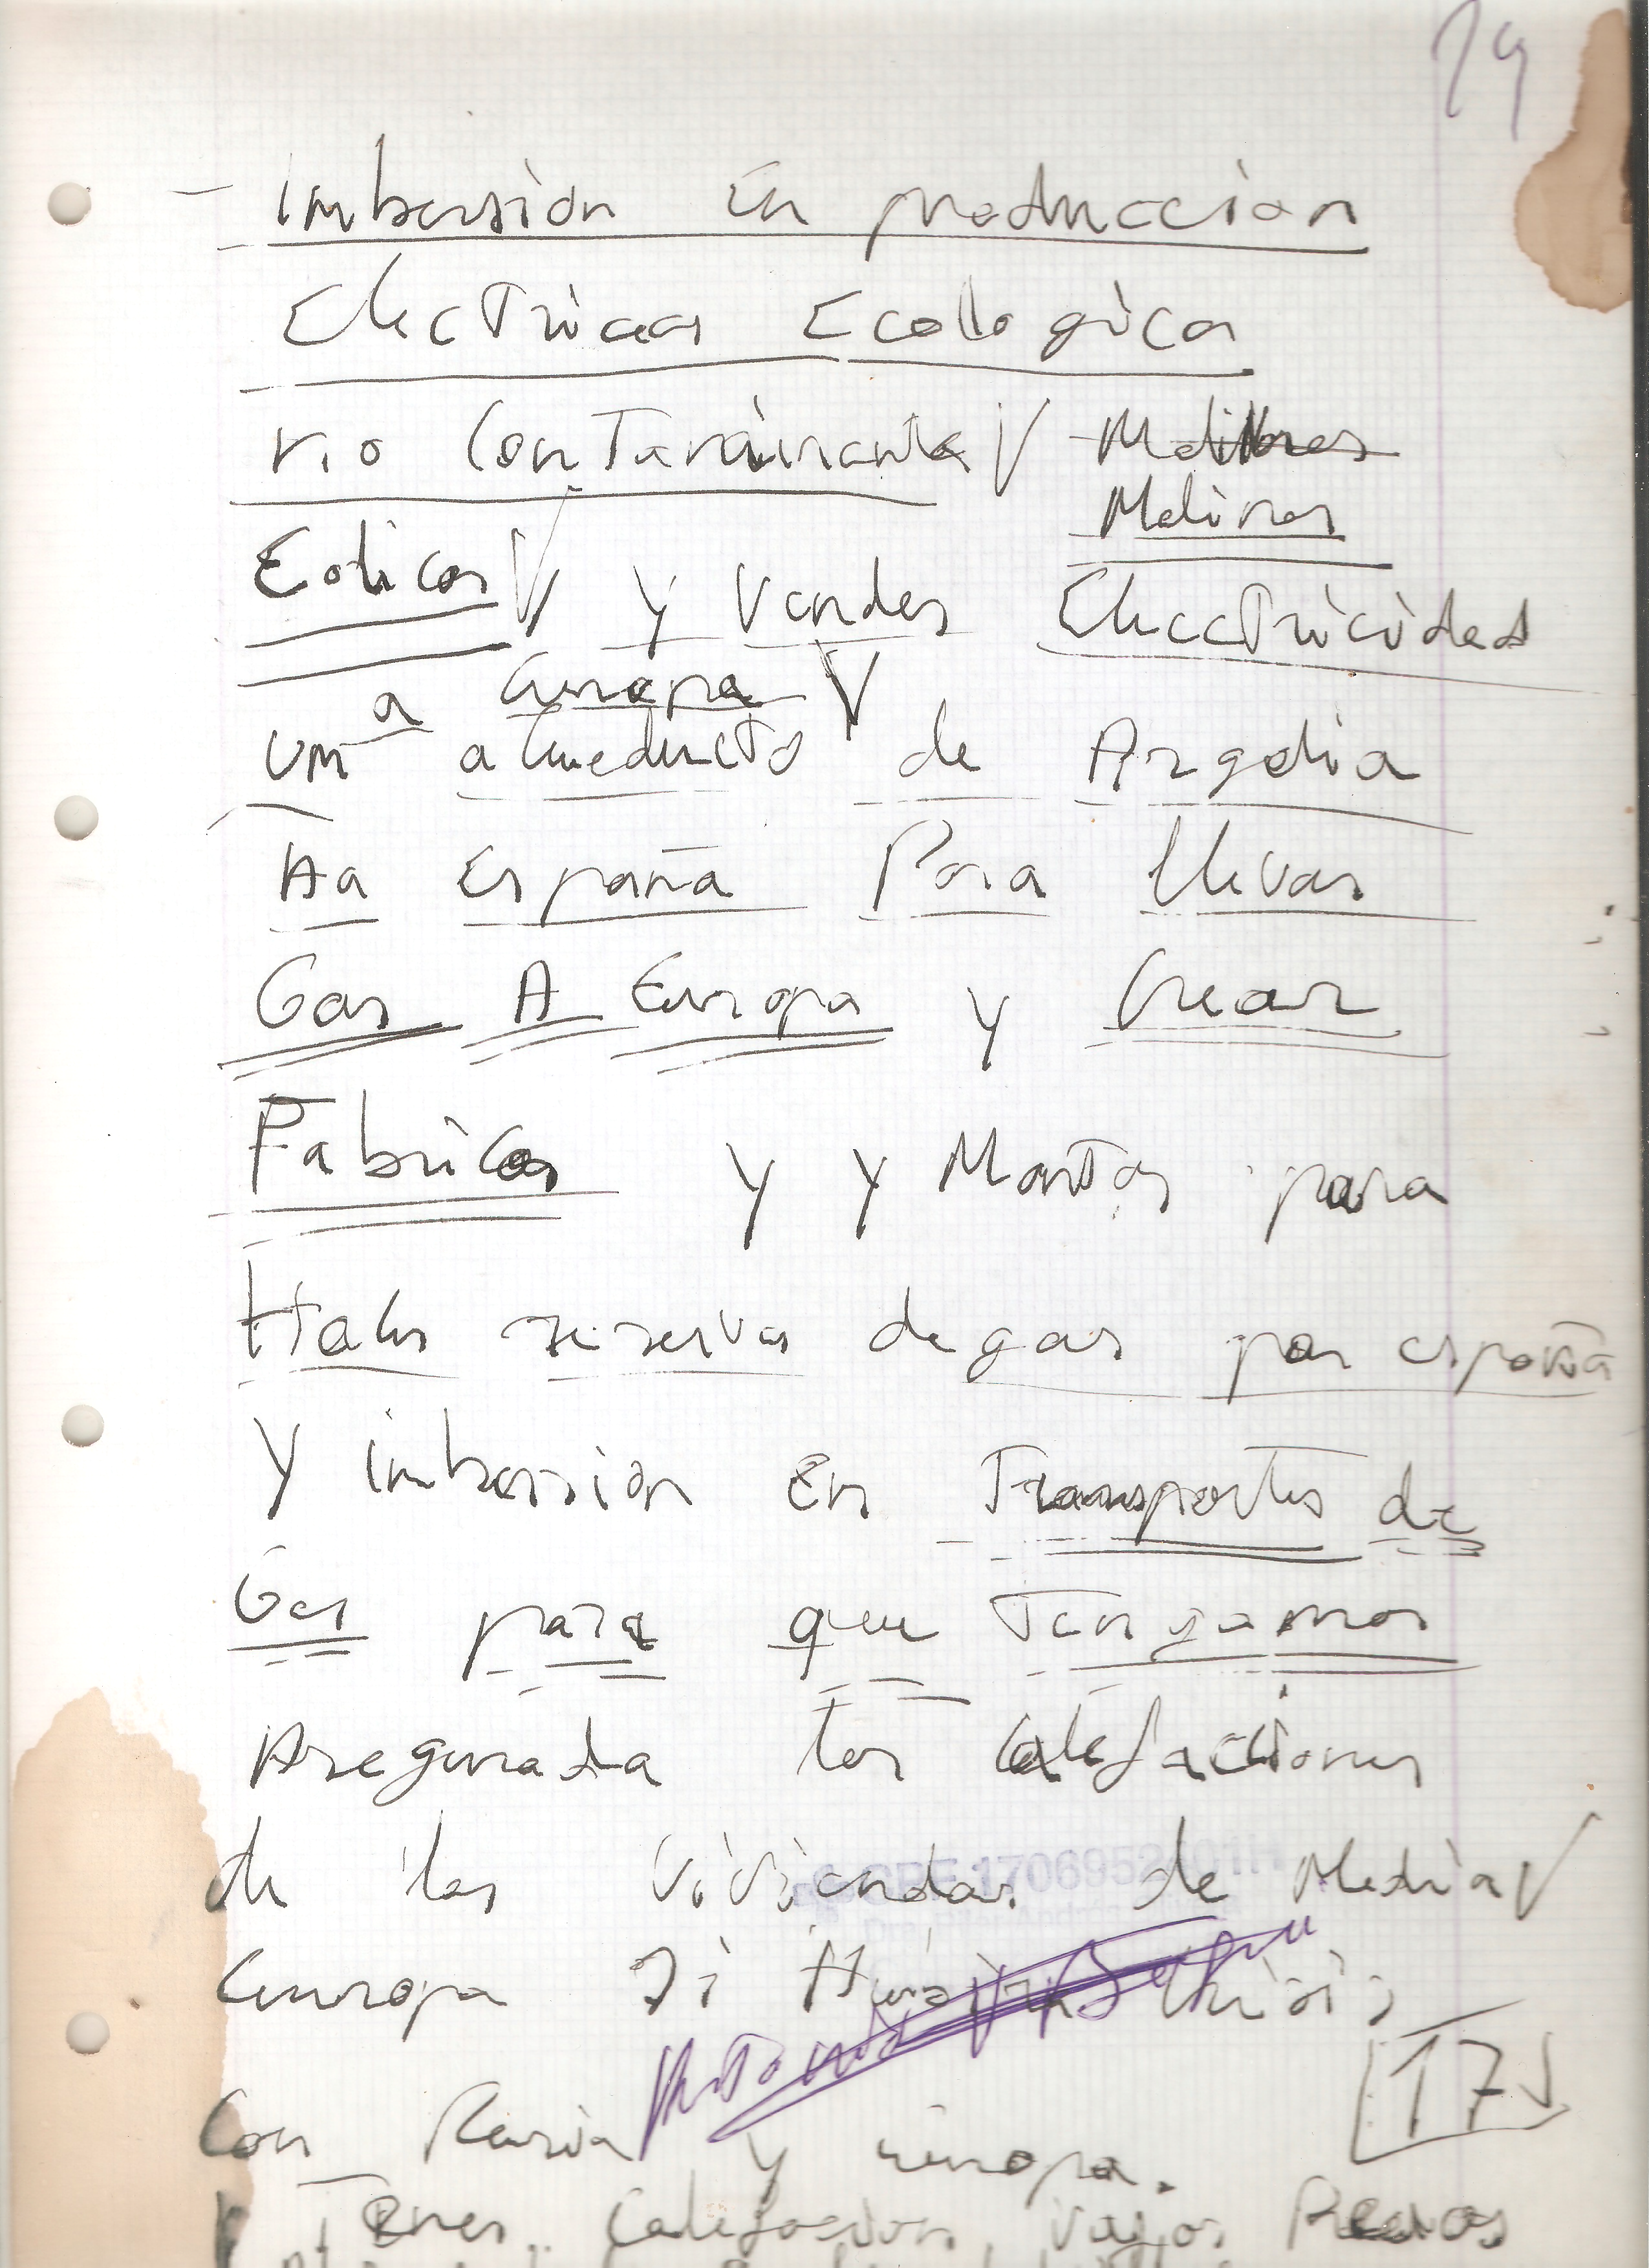 19
- Imbersión en produccion
Electricas Ecologica
no Contaminante √ Molinos
Molinos
Eolicos √ y Vender Electricidad
a Europa √
un de Argelia
Aa España Para llevar
Gas A Europa y Crear
Fabricas y y Montar para
reservas de gas por españa
y imbersion en Transportes de
Gas para que Tengamos
Asegurada las Calefaciones
de las Viviendas de Media √
Europa si crisis
17
Con Rusia y europa.
Tener Calefacion, vajos